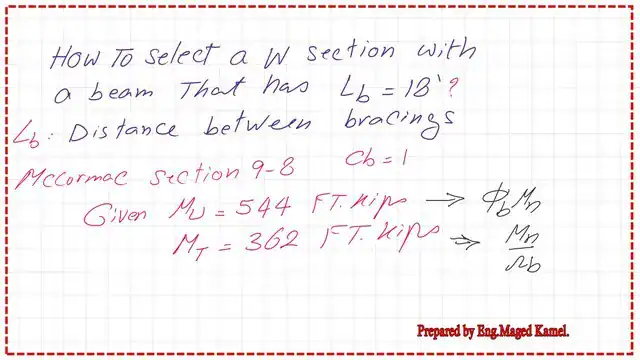 How To select a W section with
a beam That has Lb = 18' ?
Lb : Distance between bracings
McCormac section 9-8 Cb = 1
Given MU = 544 FT. Kips → ΦbMn
MT = 362 FT. Kips → Mn/Ωb
Prepared by Eng.Maged Kamel.